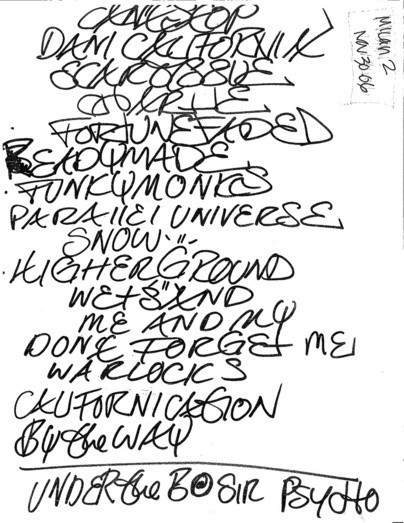 CANTSTOP
MILAN 2
NOV 30 06
DANI CALIFORNIA
SCARTISSUE
CHARLIE
FORTUNEFADED
READYMADE
FUNKYMONKS
PARALLEL UNIVERSE
SNOW
HIGHERGROUND
WETSAND
ME AND MY
DONT FORGET ME
WARLOCKS
CALIFORNICATION
BY the WAY
UNDER the B SIR PSYCHO